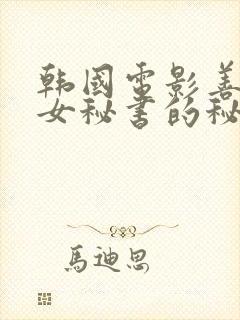 韩国电影善
女秘书的秘
馬迪思